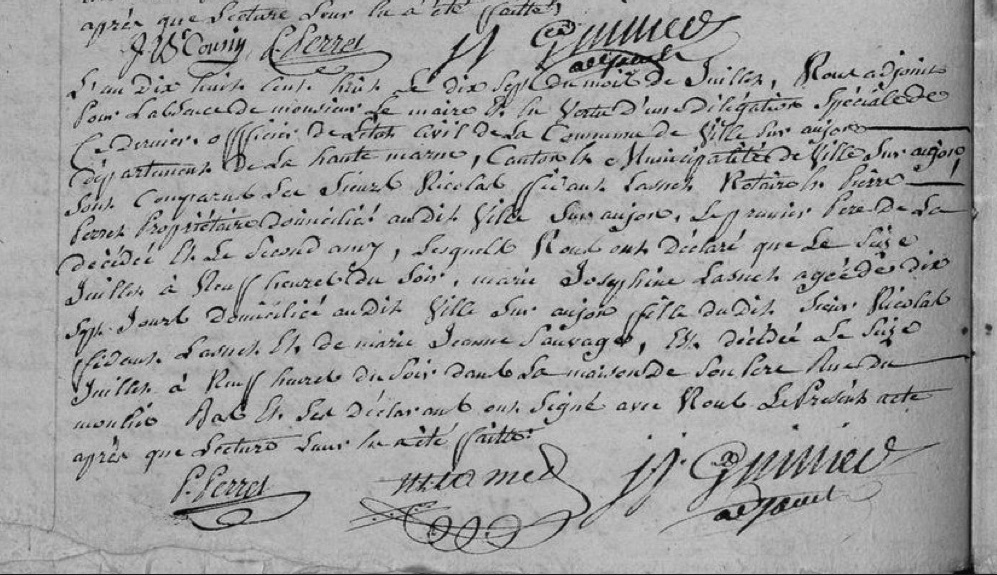 après que Lecture Leur En a été ffaitte
J. Bte Cousin P. Perret
adjoint
L'an dix huit Cent huit Le dix Sept du mois de Juillet, Nous adjoint
Pour L'absence de monsieur Le maire Et En Vertu d'une Délégation Spéciale de
Ce dernier officier de L'Etat Civil de La Commune de Ville Sur aujon
département de La haute marne, Canton Et Municipalité de Ville Sur aujon,
Sont Comparus Les Sieurs Nicolas Lasnet Notaire Et Pierre
Perret Propriétaire Domicilié audit Ville Sur aujon, Le premier Pere de La
décédée Et Le Second amy, Lesquels Nous ont déclaré que Le Seize
Juillet à Neuff heures du Soir, marie Josephine Lasnet agée de dix
Sept Jours Domiciliée audit Ville Sur aujon ffille dudit Sieur Nicolas
Lasnet Et de marie Jeanne Sauvage, Est décédée Le Seize
Juillet à Neuff heures du Soir dans La maison de Son Pere Rue du
moulin Bas Et Les Déclarants ont Signé avec Nous Le Présent acte
après que Lecture Leur En a été ffaitte
P. Perret
adjoint